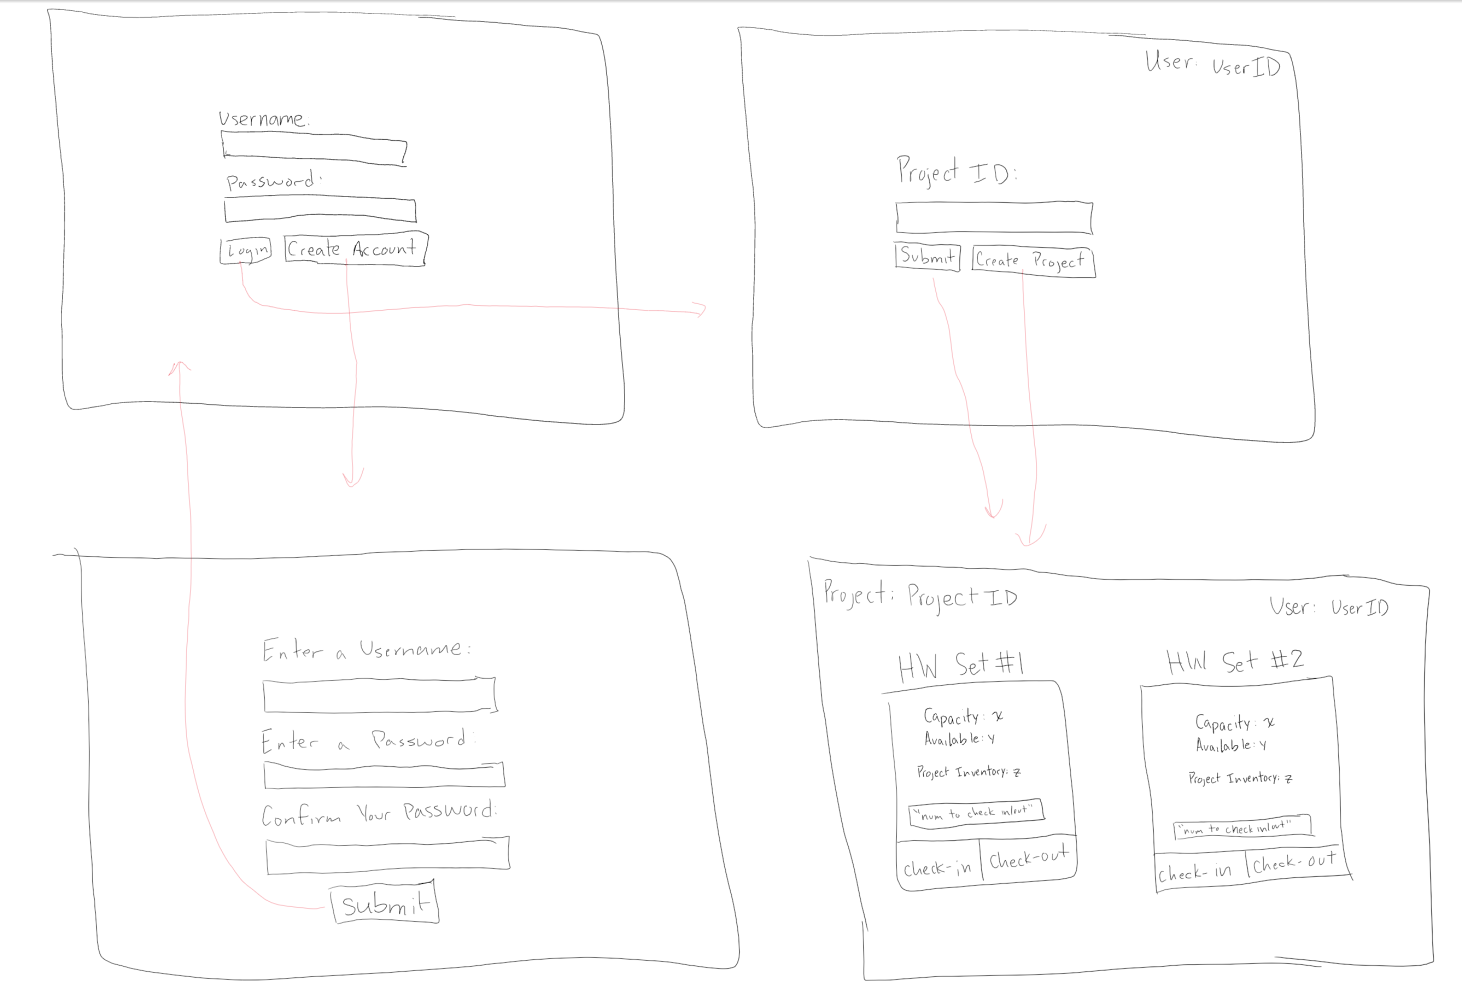 Username.
Password:
Login Create Account
User: UserID
Project ID:
Submit Create Project
Enter a Username:
Enter a Password:
Confirm Your Password:
Submit
Project: Project ID
User: UserID
HW Set #1
Capacity: x
Available: y
Project Inventory: z
"num to check in/out"
check-in Check-out
HW Set #2
Capacity: x
Available: y
Project Inventory: z
"num to check in/out"
check-in Check-out